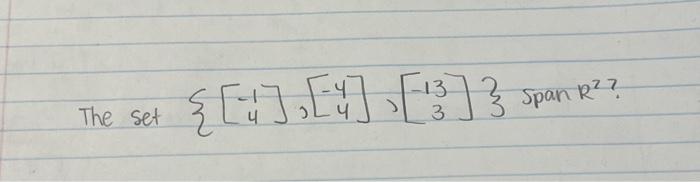 The set { [-1 4], [-4 4], [-13 3] } span R²?